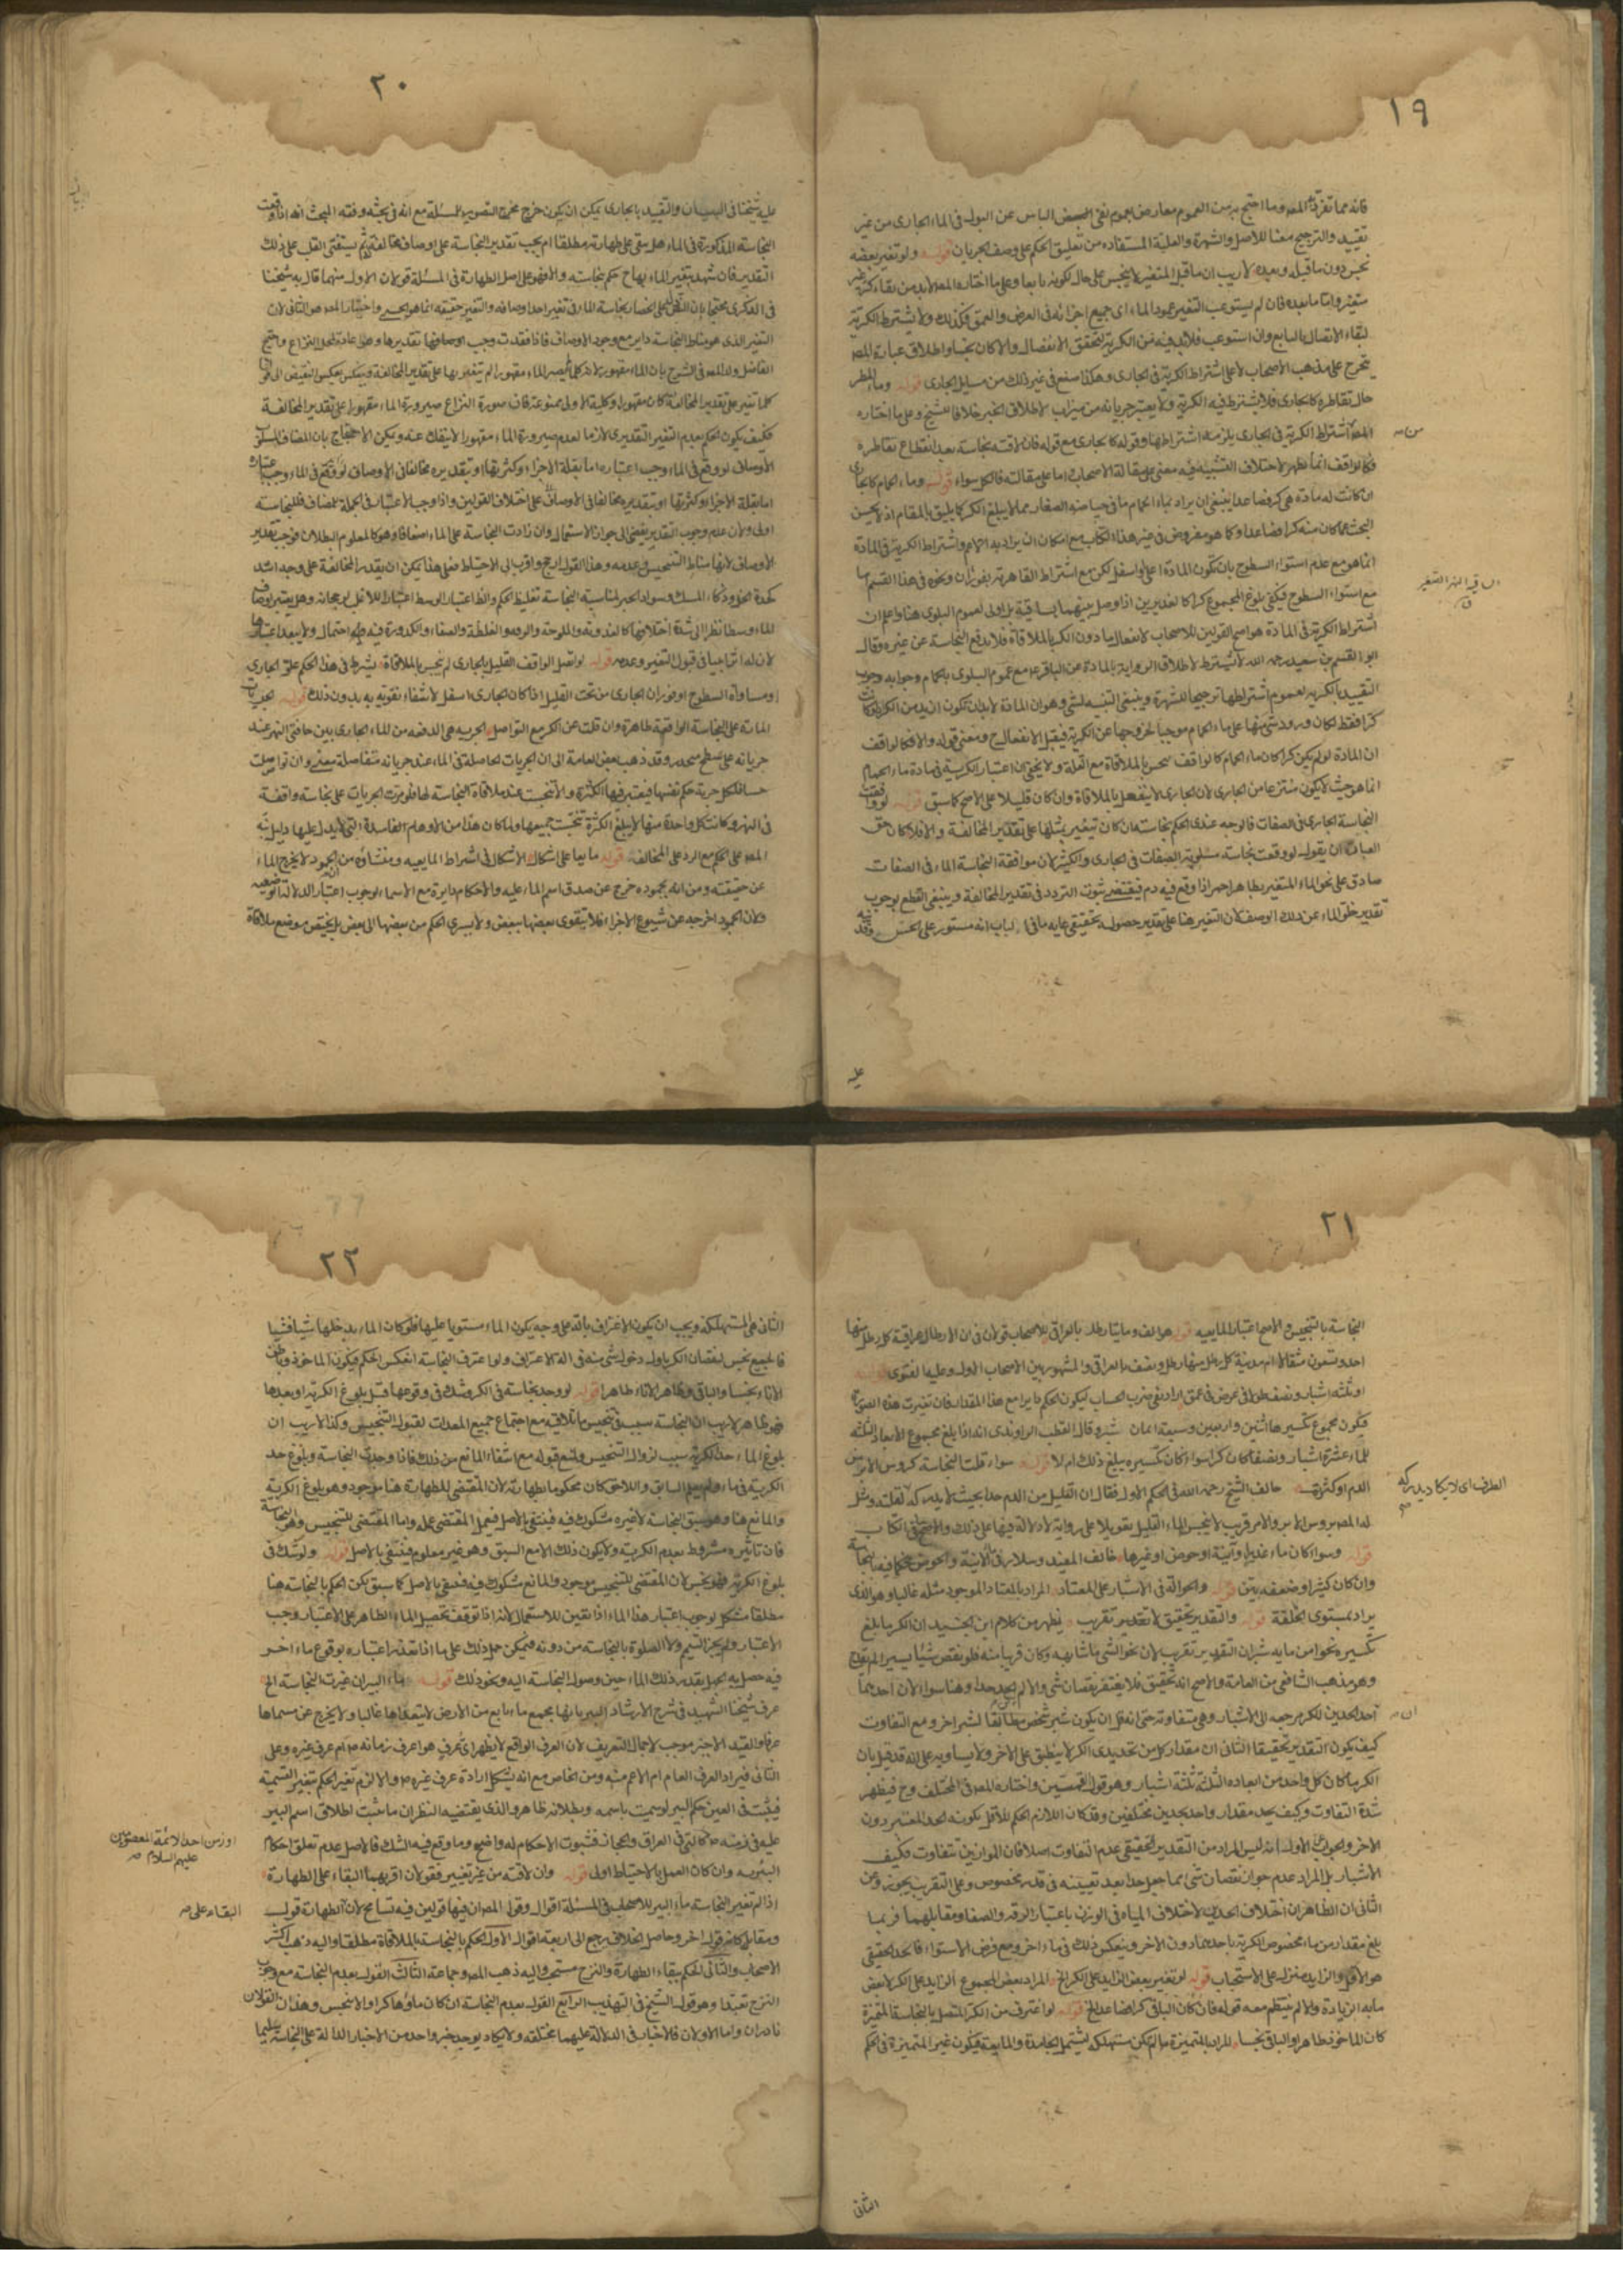 ١٩
فانه مما تفرد به المصـ وما احتج به من العموم معارض بعموم نفي البأس عن البول في الماء الجاري من غير
تقييد والترجيح معنا للأصل والشهرة والعلية المستفاده من تعليق الحكم على وصف الجريان قوله ولو تغير بعضه
نجس دون ما قبله وبعده لا ريب ان ما قبل المتغير لا ينجس على حال لكونه نابعا وعلى ما اختاره المصـ لابد من بقاء كثرته
متغير واما ما بعده فان لم يستوعب التغير عمود الماء اى جميع اجزائه في العرض والعمق فكذلك ولا يشترط الكرية
لبقاء الاتصال بالنابع وان استوعب فلابد فيه من الكرية لتحقق الانفصال والا كان نجسا واطلاق عبارة المصـ
يتخرج على مذهب الاصحاب لا على اشتراط الكرية في الجاري وهكذا صنع في غير ذلك من مسايل الجاري قوله وماء المطر
حال تقاطره كالجاري فلا يشترط فيه الكرية ولا يعتبر جريانه من ميزاب لاطلاق الخبر خلافا للشيخ وعلى ما اختاره
المصـ من اشتراط الكرية في الجاري يلزمه اشتراطها وقوله كالجاري مع قوله فان لاقته نجاسة بعد انقطاع تقاطره
فكالواقف انما يظهر لاختلاف التشبيه فيه معنى على مقالة الاصحاب اما على مقالته فالكل سواء قوله وماء الحمام كالجاري
ان كانت له مادة هي كر فصاعدا ينبغي ان يراد بماء الحمام ما في حياضه الصغار مما لا يبلغ الكر كما يليق بالمقام اذ لا يحسن
البحث عما كان منه كرا فصاعدا وكما هو مفروض في غير هذا الكتاب مع امكان ان يراد به الحمام واشتراط الكرية في المادة
انما هو مع عدم استواء السطوح بان تكون المادة اعلى او اسفل لكن مع اشتراط القاهرية بفوران ونحوه في هذا القسم اما
مع استواء السطوح فيكفي بلوغ المجموع كرا كالغديرين اذا وصل بينهما بساقية بل اولى لعموم البلوى هنا واعلم ان
اشتراط الكرية في المادة هو اصح القولين للاصحاب لانفعال ما دون الكر بالملاقاة فلا يدفع النجاسة عن غيره وقال
ابو القسم بن سعيد رحمه الله لا يشترط لاطلاق الرواية بالمادة عن الباقر ع مع عموم البلوى بالحمام وجوابه وجوب
التقييد بالكرية لعموم اشتراطها ترجيحا للشهرة وينبغي التنبيه لشيء وهو ان المادة لا بد ان تكون ازيد من الكر اذ لو كانت
كرا فقط لكان ورود شيء منها على ماء الحمام موجبا لخروجها عن الكرية فيقبل الانفعال ح ومعنى قوله والا فكالواقف
ان المادة لو لم يكن كرا كان ماء الحمام كالواقف ينجس بالملاقاة مع القلة ولا يخفى ان اعتبار الكرية في مادة ماء الحمام
انما هو حيث لا يكون منتزعا من الجاري لان الجاري لا ينفعل بالملاقاة وان كان قليلا على الاصح كما سبق قوله لو وافقت
النجاسة الجاري في الصفات فالوجه عندي الحكم بنجاسته ان كان يتغير بمثلها على تقدير المخالفة والا فلا كان حق
العبارة ان يقول لو وقعت نجاسة مسلوبة الصفات في الجاري والكثير لان موافقة النجاسة الماء في الصفات
صادق على نحو الماء المتغير بطاهر احمر اذا وقع فيه دم فيقتضي ثبوت التردد في تقدير المخالفة وينبغي القطع بوجوب
تقدير خلو الماء عن ذلك الوصف لان التغير هنا على تقدير حصوله تحقيقي غاية ما في الباب انه مستور على الحس وقد نبه
عليه
٢٠
عليه شيخنا في البيان والتقييد بالجاري يمكن ان يكون خرج مخرج التصوير للمسئلة مع انه في بحثه وفقه المبحث انه اذا وقعت
النجاسة المذكورة في الماء هل يبقى على طهارته مطلقا ام يجب تقدير النجاسة على اوصاف مخالفة ثم يستفتى القلب على ذلك
التقدير فان شهد بتغير الماء بها ح حكم بنجاسته والا فهو على اصل الطهارة في المسئلة قولان الاول منهما قال به شيخنا
في الذكرى محتجا بان انحصار نجاسة الماء في تغير احد اوصافه والتغير حقيقة انما هو الحسي واختيار المصـ هو الثاني لان
التغير الذي هو مناط النجاسة داير مع وجود الاوصاف فاذا فقدت وجب تقديرها وهو اعادة لمحل النزاع واحتج
الفاضل ولد المصـ في الشرح بان الماء مقهور لانه كلما لم يصر الماء مقهورا لم يتغير بها على تقدير المخالفة وينعكس بعكس النقيض الى قولنا
كلما تغير على تقدير المخالفة كان مقهورا وكلية الاولى ممنوعة فان صورة النزاع صيرورة الماء مقهورا على تقدير المخالفة
فكيف يكون الحكم بعدم التغير التقديري لازما لعدم صيرورة الماء مقهورا لا ينفك عنه ويمكن الاحتجاج بان المضاف المسلوب
الاوصاف لو وقع في الماء وجب اعتباره اما بقلة الاجزاء وكثرتها او بتقديره مخالفا في الاوصاف
اما بقلة الاجزاء وكثرتها او بتقديره مخالفا في الاوصاف على اختلاف القولين واذا وجب الاعتبار في الجملة للمضاف فللنجاسة
اولى ولان عدم وجوب التقدير يفضي الى جواز الاستعمال وان زادت النجاسة على الماء اضعافا وهو كالمعلوم البطلان فوجب تقدير
الاوصاف لانها مناط التنجيس وعدمه وهذا القول ارجح واقرب الى الاحتياط فعلى هذا يمكن ان يقدر المخالفة على وجه اشد
كحدة الخل وذكاء المسك وسواد الحبر لمناسبة النجاسة تغليظ الحكم واعتبار الوسط اعتبارا للاغلب لرجحانه وهل يعتبر اوصاف
الماء وسطا نظرا الى شدة اختلافها كالعذوبة والملوحة والرقة والغلظة والصفاء والكدورة فيه احتمال ولا يبعد اعتبارها
لان له اثرا بينا في قبول التغير وعدمه قوله لو اتصل الواقف القليل بالجاري لم ينجس بالملاقاة يشترط في هذا الحكم علو الجاري
او مساواة السطوح او فوران الجاري من تحت القليل اذا كان الجاري اسفل لانتفاء تقويه به بدون ذلك قوله الجريات
المارة على النجاسة الواقفة طاهرة وان قلت عن الكر مع التواصل الجرية هي الدفعة من الماء الجاري بين حافتي النهر عند
جريانه على سطح منحدر وقد ذهب بعض العامة الى ان الجريات الحاصلة في الماء عند جريانه متفاصلة معنى وان تواصلت
حسا فلكل جرية حكم نفسها فيعتبر فيها الكثرة والا تنجست عند ملاقاة النجاسة لها فلو مرت الجريات على نجاسة واقفة
في النهر وكانت كل واحدة منها لا يبلغ الكثرة تنجست جميعها ولما كان هذا من الاوهام الفاسدة التي لا يدل عليها دليل نبه
المصـ على الحكم مع الرد على المخالف قوله مايعا على اشكال الاشكال في اشتراط المايعيه ومنشاؤه من ان الجمود لا يخرج الماء
عن حقيقته ومن انه بجموده خرج عن صدق اسم الماء عليه والاحكام دايرة مع الاسماء لوجوب اعتبار الدلالة الوضعيه
ولان الجمود اخرجه عن شيوع الاجزاء فلا يتقوى بعضها ببعض ولا يسري الحكم من بعضها الى بعض بل يختص موضع ملاقاة
٢١
النجاسة بالتنجيس والاصح اعتبار المايعيه قوله هو الف ومايتا رطل بالعراقي للاصحاب قولان في ان الارطال عراقية كل رطل منها
احد وتسعون مثقالا ام مدنية كل رطل منها رطل ونصف بالعراقي والمشهور بين الاصحاب الاول وعليها الفتوى قوله
او ثلثه اشبار ونصف طولا في عرض في عمق اراد بفي ضرب الحساب ليكون الحكم دايرا مع هذا المقدار فان تغيرت هذه الصورة
فيكون مجموع تكسيرها اثنين واربعين وسبعة اثمان شبر وقال القطب الراوندي انه اذا بلغ مجموع الابعاد الثلثه
للماء عشرة اشبار ونصفا كان كرا سواء كان تكسيره يبلغ ذلك ام لا قوله سواء قلت النجاسة كرؤس الابر من
الدم او كثرت خالف الشيخ رحمه الله في الحكم الاول فقال ان القليل من الدم جدا بحيث لا يدركه لقلته ومثل
له المصـ برؤس الابر والامر قريب لا ينجس الماء القليل تعويلا على رواية لا دلالة فيها على ذلك والاصح ما في الكتاب
قوله وسواء كان ماء غدير او آنية او حوض او غيرها خالف المفيد وسلار في الآنية والحوض فحكما فيهما بالنجاسة
وان كان كثيرا وضعفه بين قوله والحوالة في الاشبار على المعتاد المراد بالمعتاد الموجود مثله غالبا وهو الذي
يراد بمستوى الخلقة قوله والتقدير تحقيق لا تقريب يظهر من كلام ابن الجنيد ان الكر ما بلغ
تكسيره نحوا من مايه شبر ان التقدير تقريب لان نحو الشيء ما شابهه وكان قريبا منه فلو نقص شيئا يسيرا لم يقدح
وهو مذهب الشافعي من العامة والاصح انه تحقيق فلا يغتفر نقصان شيء والا لم يكن الحد حدا وهنا سؤالان احدهما
ان احد الحدين للكر مرجعه الى الاشبار وهي متفاوته حتى انه قل ان يكون شبر شخص مطابقا لشبر اخر ومع التفاوت
كيف يكون التقدير تحقيقا الثاني ان مقدار كل من تحديدي الكر لا ينطبق على الاخر ولا يساويه على انه قد قيل بان
الكر ما كان كل واحد من ابعاده الثلثه ثلثة اشبار وهو قول القميين واختاره المصـ في المختلف وح فيظهر
شدة التفاوت وكيف يحد مقدار واحد بحدين مختلفين وقد كان اللازم الحكم للاقل بكونه الحد المعتبر دون
الاخر والجواب عن الاول انه ليس المراد من التقدير التحقيقي عدم التفاوت اصلا فان الموازين تتفاوت فكيف
الاشبار بل المراد عدم جواز نقصان شيء مما جعل حدا بعد تعيينه في قدر مخصوص وعلى التقريب يجوز وعن
الثاني ان الظاهر ان اختلاف الحدين لاختلاف المياه في الوزن باعتبار الرقة والصفا ومقابلهما فربما
بلغ مقدار من ماء مخصوص الكرية باحدهما دون الاخر وينعكس ذلك في ماء اخر ومع فرض الاستواء فالحد الحقيقي
هو الاقل والزايد منزل على الاستحباب قوله لو تغير بعض الزايد على الكر الخ المراد بعض المجموع الزايد على الكر لا بعض
ما به الزيادة والا لم ينتظم معه قوله فان كان الباقي كرا فصاعدا الخ قوله لو اغترف من الكر المتصل بالنجاسة المتميزة
كان الماخوذ طاهرا والباقي نجسا المراد بالمتميزة ما لم تكن مستهلكة لتشمل الجامدة والمايعة فيكون غير المتميزة في الحكم
الثاني
٢٢
الثاني هي المستهلكة ويجب ان يكون الاغتراف بآلة على وجه يكون الماء مستويا عليها فلو كان الماء يدخلها شيئا فشيئا
فالجميع نجس لنقصان الكر باول دخول شيء منه في آلة الاغتراف ولو اغترف النجاسة انعكس الحكم فيكون الماخوذ وباطن
الاناء نجسا والباقي وظاهر الاناء طاهرا قوله لو وجد نجاسة في الكر وشك في وقوعها قبل بلوغ الكرية او بعدها
فهو طاهر لا ريب ان النجاسة سبب في تنجيس ما تلاقيه مع اجتماع جميع المعدات لقبول التنجيس وكذا لا ريب ان
بلوغ الماء حد الكرية سبب لزوال التنجيس ومنع قبوله مع انتفاء المانع من ذلك فاذا وجدت النجاسة وبلوغ حد
الكرية في ماء ولم يعلم السابق واللاحق كان محكوما بطهارته لان المقتضي للطهارة هنا موجود وهو بلوغ الكرية
والمانع هنا وهو سبق النجاسة لا غيره مشكوك فيه فينتفي بالاصل فيعمل المقتضي عمله واما المقتضي للتنجيس وهو النجاسة
فان تاثيره مشروط بعدم الكرية ولا يكون ذلك الا مع السبق وهو غير معلوم فينتفي بالاصل قوله ولو شك في
بلوغ الكرية فهو نجس لان المقتضي للتنجيس موجود والمانع مشكوك فيه فينتفي بالاصل كما سبق لكن الحكم بالنجاسة هنا
مطلقا مشكل لوجوب اعتبار هذا الماء اذا تعين للاستعمال لانه اذا توقف تحصيل الماء الطاهر على الاعتبار وجب
الاعتبار ولم يجز التيمم ولا الصلوة بالنجاسة من دونه فيمكن حمل ذلك على ما اذا تعذر اعتباره بوقوع ماء اخر
فيه حصل به الجهل بقدر ذلك الماء حين وصول النجاسة اليه ونحو ذلك قوله ماء البير ان غيرت النجاسة الخ
عرف شيخنا الشهيد في شرح الارشاد البير بانها مجمع ماء نابع من الارض لا يتعداها غالبا ولا يخرج عن مسماها
عرفا والقيد الاخير موجب لاجمال التعريف لان العرف الواقع لا يظهر اي عرف هو اعرف زمانه ص ام عرف غيره وعلى
الثاني فيراد العرف العام ام الاعم منه ومن الخاص مع انه يشكل ارادة عرف غيره ص والا لزم تغير الحكم بتغير التسمية
فيثبت في العين حكم البير لو سميت باسمه وبطلانه ظاهر والذي يقتضيه النظر ان ما ثبت اطلاق اسم البير
عليه في زمنه ص كالتي في العراق والحجاز فثبوت الاحكام له واضح وما وقع فيه الشك فالاصل عدم تعلق احكام
البئر به وان كان العمل بالاحتياط اولى قوله وان لاقته من غير تغيير فقولان اقربهما البقاء على الطهارة
اذا لم تغير النجاسة ماء البير للاصحاب في المسئلة اقوال وقول المصـ ان فيها قولين فيه تسامح لان الطهارة قول
ومقابلها قول اخر وحاصل الخلاف يرجع الى اربعة اقوال الاول الحكم بالنجاسة بالملاقاة مطلقا واليه ذهب اكثر
الاصحاب والثاني الحكم ببقاء الطهارة والنزح مستحب واليه ذهب المصـ وجماعة الثالث القول بعدم النجاسة مع وجوب
النزح تعبدا وهو قول الشيخ في التهذيب الرابع القول بعدم النجاسة ان كان ماؤها كرا والا نجس وهذان القولان
نادران واما الاولان فالاخبار في الدلالة عليهما مختلفة ولا يكاد يوجد خبر واحد من الاخبار الدالة على النجاسة سليما
او زمن احد الائمة المعصومين
عليهم السلام صـ
البقاء على صـ